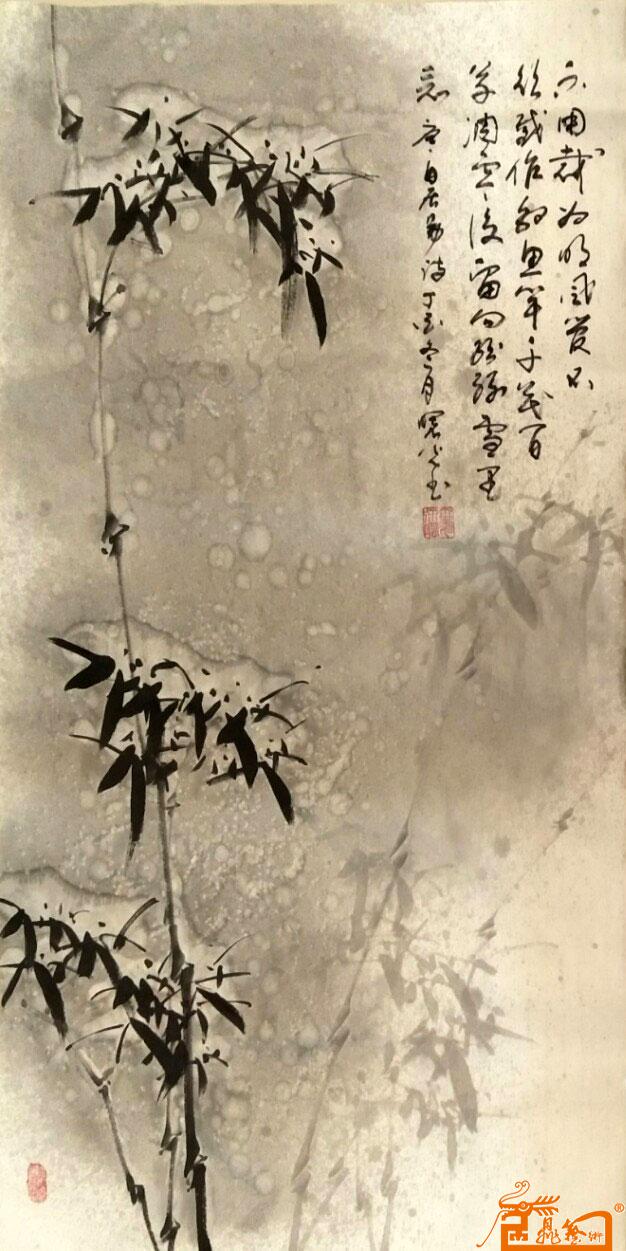 不用裁为鸣凤管不
须截作钓鱼竿千花百
草凋零后留向纷纷雪里
看 唐白居易诗丁酉冬月曙光
藝術